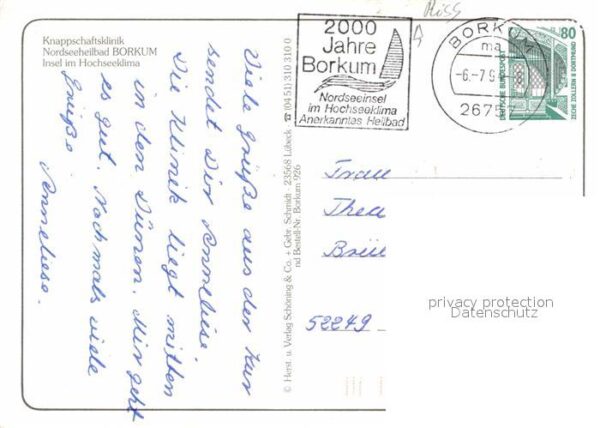 Knappschaftsklinik
Nordseeheilbad BORKUM
Insel im Hochseeklima
Viele Grüße aus der Kur
sendet Dir Anneliese.
Die Klinik liegt mitten
in den Dünen. Mir geht
es gut. Nochmals viele
Grüße
Anneliese.
© Herst. u. Verlag Schöning & Co. + Gebr. Schmidt · 23568 Lübeck · ☎ (04 51) 310 310 0
nd Bestell-Nr. Borkum 926
Riss
2000
Jahre
Borkum
Nordseeinsel
im Hochseeklima
Anerkanntes Heilbad
BORKUM
ma
-6.-7.9
2675
80
DEUTSCHE BUNDESPOST
Frau
Thea
52249
privacy protection
Datenschutz